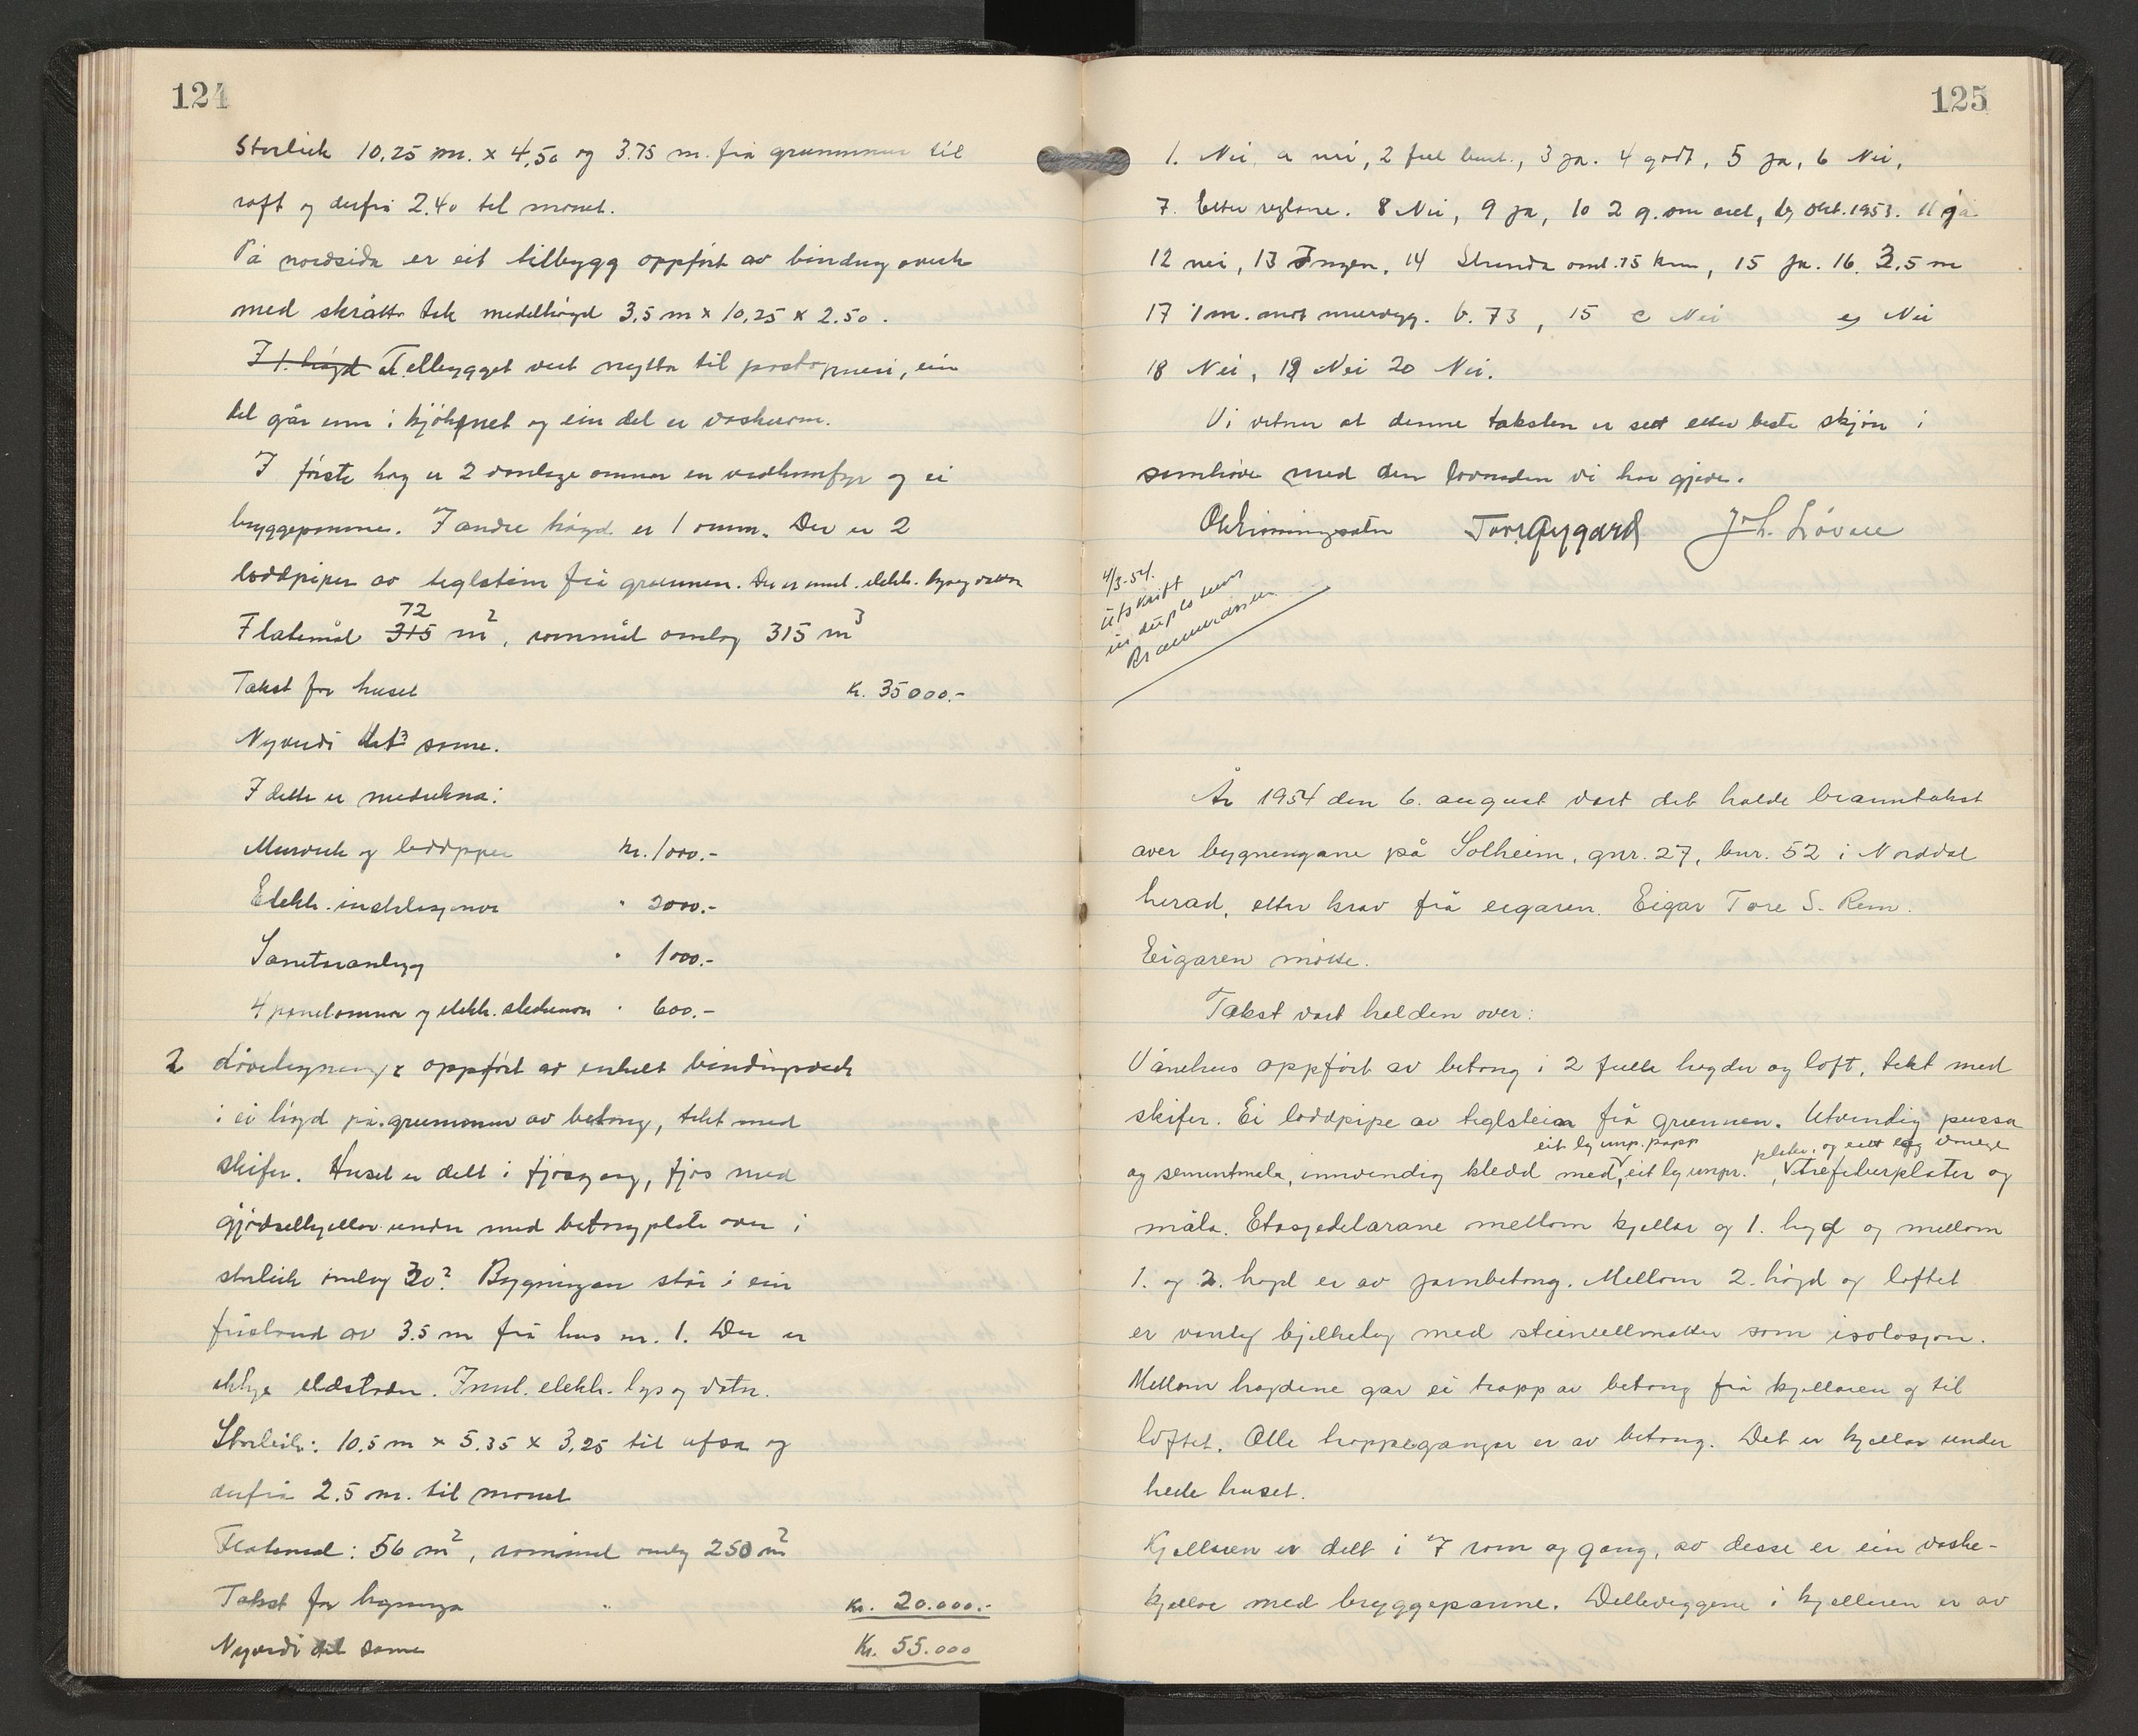 124
Storleik 10,25 m. x 4,50 og 3.75 m. frå grunnmur til
raft og derfrå 2.40 til mønet.
På nordsida er eit tilbygg oppført av bindingsverk
med skråtto tak medelhøgd 3,5 m x 10,25 x 2.50.
I 1. høgd Tilbygget vert nytta til postopneri, ein
del går inn i kjøkenet og ein del er vaskerom.
I første høg er 2 vanlege omnar en vedkomfyr og ei
bryggepanne. I andre høgd er 1 omn. Der er 2
loddpiper av teglstein frå grunnen. Der er innl. elektr. lys og vatn
Flatemål 315 72 m2, rommål omlag 315 m3
Takst for huset Kr. 35000.-
Nyverdi det same.
I dette er medrekna:
Murverk og loddpiper kr. 1000.-
Elektr. installasjonar " 2000.-
Sanitæranlegg " 1000.-
4 panelomnar og elektr. " 600.-
2 Løebygning oppført av enkelt bindingsverk
i ei høgd på grunnmur av betong, tekt med
skifer. Huset er delt i fjøsgang, fjøs med
gjødselkjellar under med betongplate over i
storleik omlag 30 2 Bygningen står i ein
fråstand av 3.5 m frå hus nr. 1. Der er
ikkje eldstader. Innl. elektr. lys og vatn.
Storleik: 10.5 m x 5.35 x 3,25 til ufsa og
derfrå 2.5 m. til mønet
Flatemål: 56 m2, rommål omlag 250 m2
Takst for bygninga Kr. 20.000.-
Nyverdi det same Kr. 55.000
125
1. Nei, a nei, 2 , 3 ja. 4 godt, 5 ja, 6 Nei,
7. Etter reglane. 8 Nei, 9 ja, 10 2 g. om året, okt. 1953. 11 ja
12 nei, 13 Ingen, 14 Stranda oml. 15 km, 15 ja. 16. 3.5 m
17 1 m. mot murvegg. b. 73, 15 c Nei e) Nei
18 Nei, 19 Nei 20 Nei.
Vi vitner at denne taksten er sett etter beste skjøn i
samhøve med den lovnaden vi har gjeve.
Tore Gygard Joh. Løvoll
4/3-54.
Utskrift
in duplo
År 1954 den 6. august vart det halde branntakst
over bygningane på Solheim, gnr. 27, bnr. 52 i Norddal
herad, etter krav frå eigaren. Eigar Tore S. Rem.
Eigaren møtte.
Takst vart halden over:
Vånehus oppført av betong i 2 fulle høgder og loft, tekt med
skifer. Ei loddpipe av teglstein frå grunnen. Utvendig pussa
eit lag imp. papp plater, og eitt lag vanlege
og sementmala, innvendig kledd med, eit lag impr. , trefiberplater og
måla. Etasjedelarane mellom kjellar og 1. høgd og mellom
1. og 2. høgd er av jarnbetong. Mellom 2. høgd og loftet
er vanleg bjelkelag med steinullmatter som isolasjon.
Mellom høgdene går ei trapp av betong frå kjellaren og til
loftet. Alle trappegangar er av betong. Det er kjellar under
heile huset.
Kjellaren er delt i 7 rom og gang, av desse er ein vaske-
kjellar med bryggepanne. Delleveggene i kjelleren er av